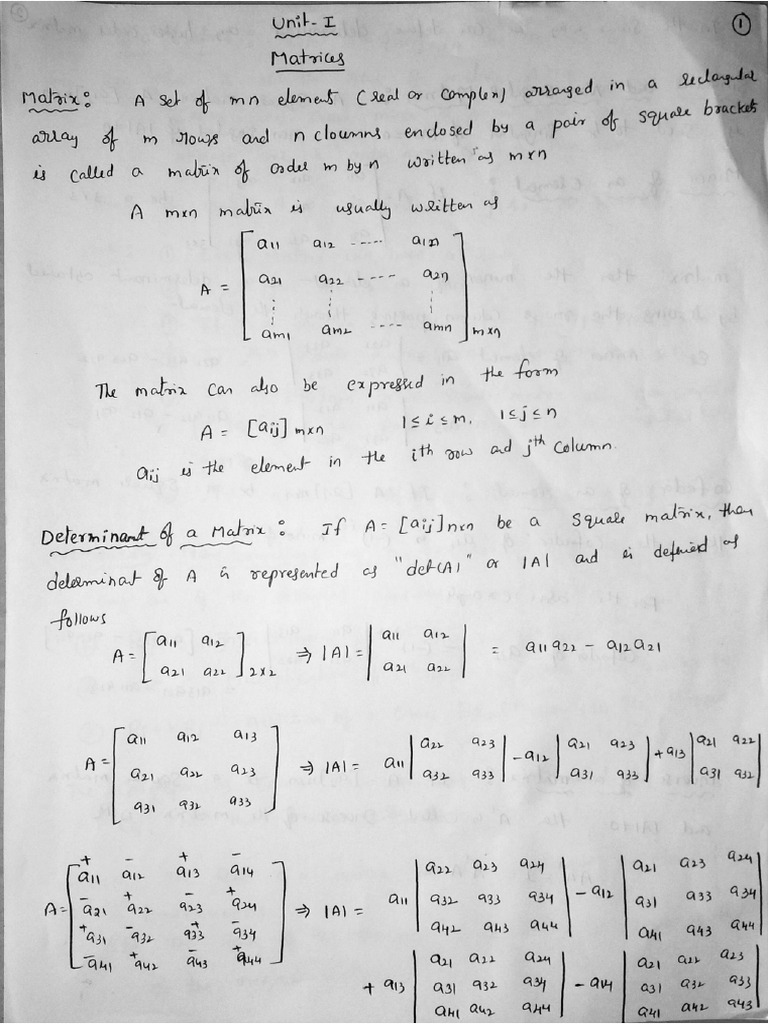 1
Unit-I
Matrices
Matrix: A set of mn element (real or complex) arranged in a rectangular
array of m rows and n cloumns enclosed by a pair of square brackets
is called a matrix of order m by n written as mxn
A mxn matrix is usually written as
A = [a11 a12 ----- a1n
a21 a22 ---- a2n
⋮ ⋮ ⋮
am1 am2 ---- amn] mxn
The matrix can also be expressed in the form
A = [aij] mxn 1≤i≤m, 1≤j≤n
aij is the element in the ith row and jth column.
Determinant of a Matrix: If A = [aij]nxn be a square matrix, then
determinant of A is represented as "det(A)" or |A| and is defined as
follows
A = [a11 a12; a21 a22]2x2 ⇒ |A| = |a11 a12; a21 a22| = a11a22 - a12a21
A = [a11 a12 a13; a21 a22 a23; a31 a32 a33] ⇒ |A| = a11 |a22 a23; a32 a33| - a12 |a21 a23; a31 a33| + a13 |a21 a22; a31 a32|
A = [+a11 -a12 +a13 -a14; -a21 +a22 -a23 +a24; +a31 -a32 +a33 -a34; -a41 +a42 -a43 +a44] ⇒ |A| = a11 |a22 a23 a24; a32 a33 a34; a42 a43 a44| - a12 |a21 a23 a24; a31 a33 a34; a41 a43 a44|
+ a13 |a21 a22 a24; a31 a32 a34; a41 a42 a44| - a14 |a21 a22 a23; a31 a32 a33; a41 a42 a43|